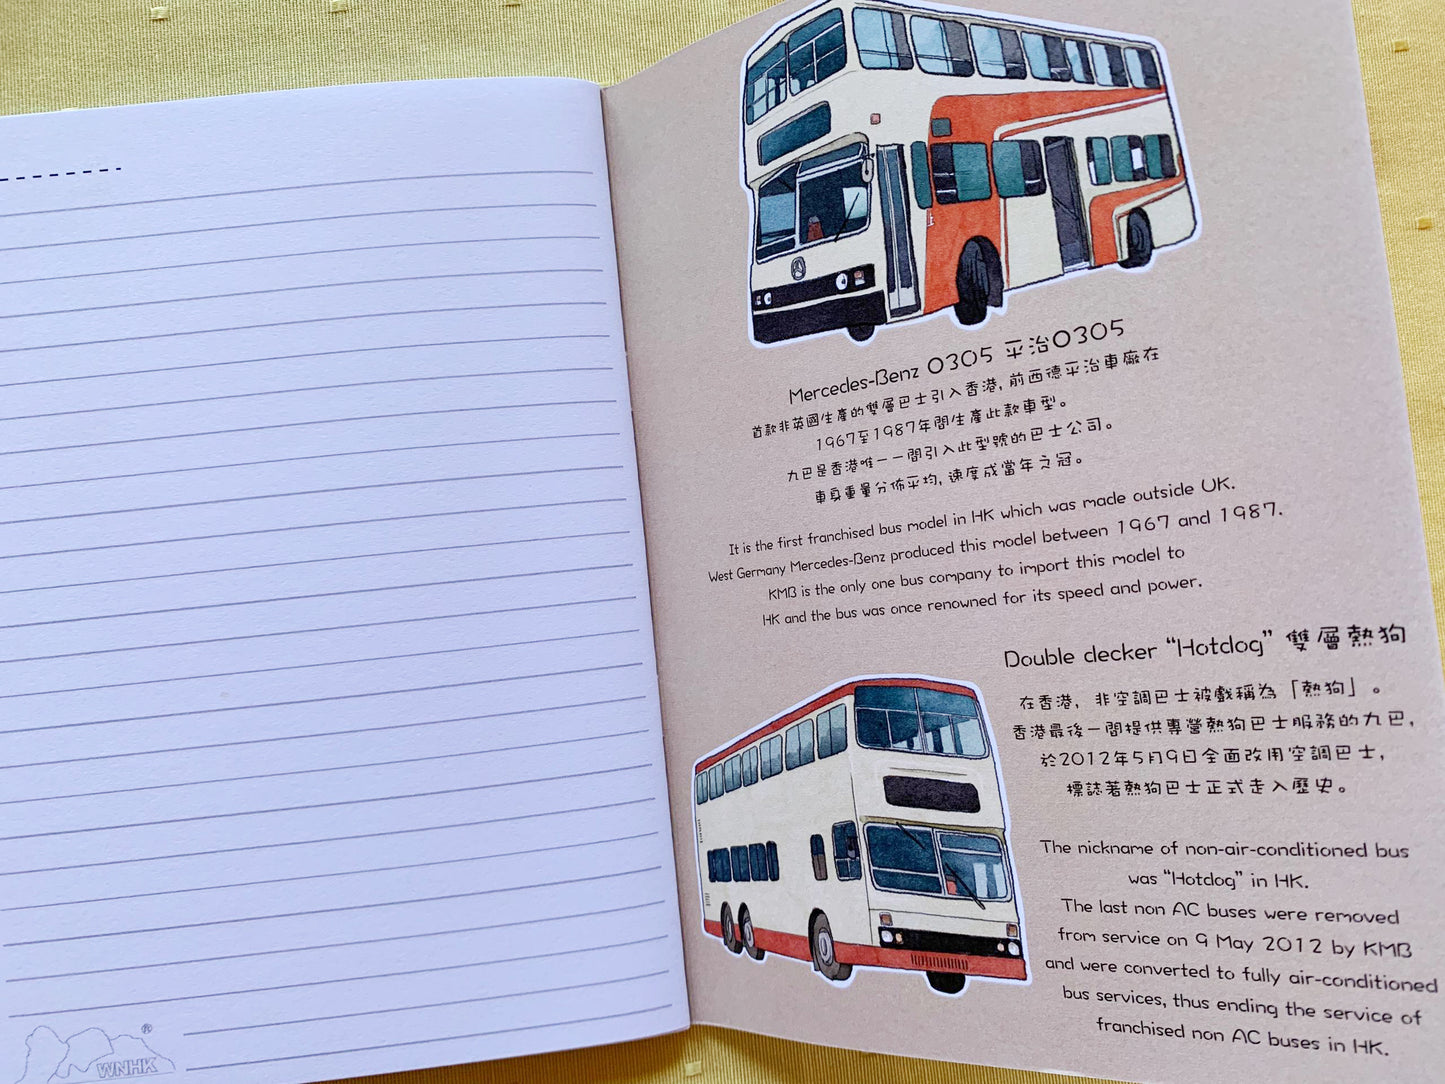 Mercedes-Benz O305 平治O305
首款非英國生產的雙層巴士引入香港, 前西德平治車廠在
1967至1987年間生產此款車型。
九巴是香港唯一一間引入此型號的巴士公司。
車身重量分佈平均, 速度成當年之冠。
It is the first franchised bus model in HK which was made outside UK.
West Germany Mercedes-Benz produced this model between 1967 and 1987.
KMB is the only one bus company to import this model to
HK and the bus was once renowned for its speed and power.
Double decker “Hotdog” 雙層熱狗
在香港, 非空調巴士被戲稱為「熱狗」。
香港最後一間提供專營熱狗巴士服務的九巴,
於2012年5月9日全面改用空調巴士,
標誌著熱狗巴士正式走入歷史。
The nickname of non-air-conditioned bus
was “Hotdog” in HK.
The last non AC buses were removed
from service on 9 May 2012 by KMB
and were converted to fully air-conditioned
bus services, thus ending the service of
franchised non AC buses in HK.
®
WNHK